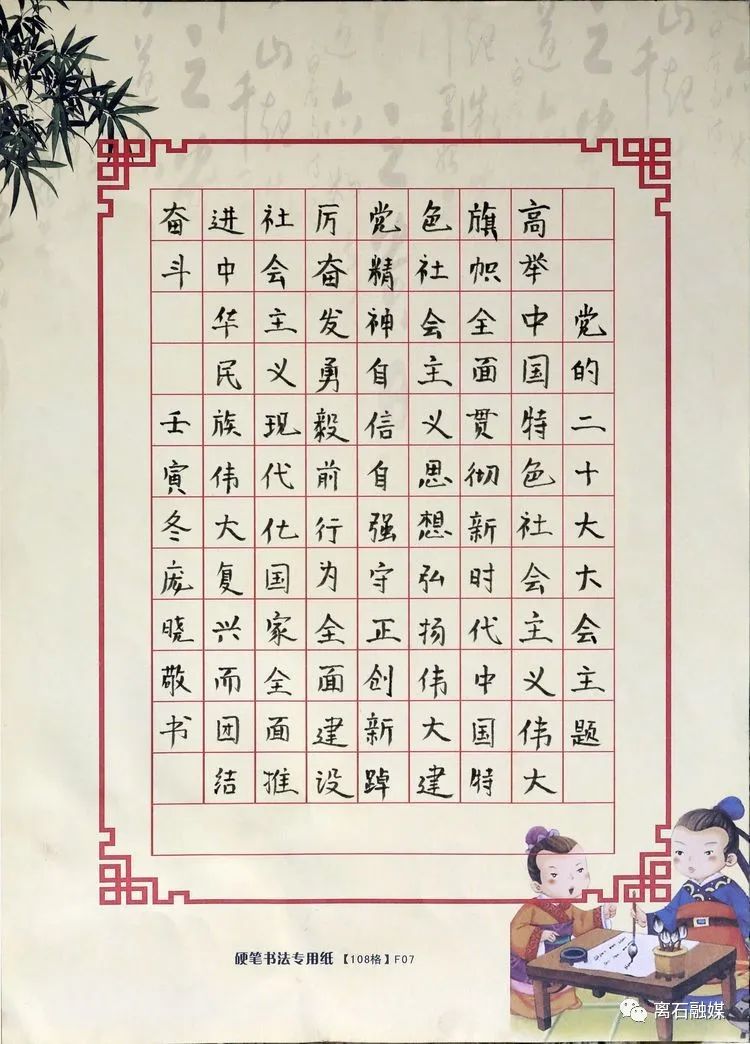 党的二十大大会主题
高举中国特色社会主义伟大
旗帜全面贯彻新时代中国特
色社会主义思想弘扬伟大建
党精神自信自强守正创新踔
厉奋发勇毅前行为全面建设
社会主义现代化国家全面推
进中华民族伟大复兴而团结
奋斗
壬寅冬庞晓敬书
硬笔书法专用纸【108格】F07
离石融媒